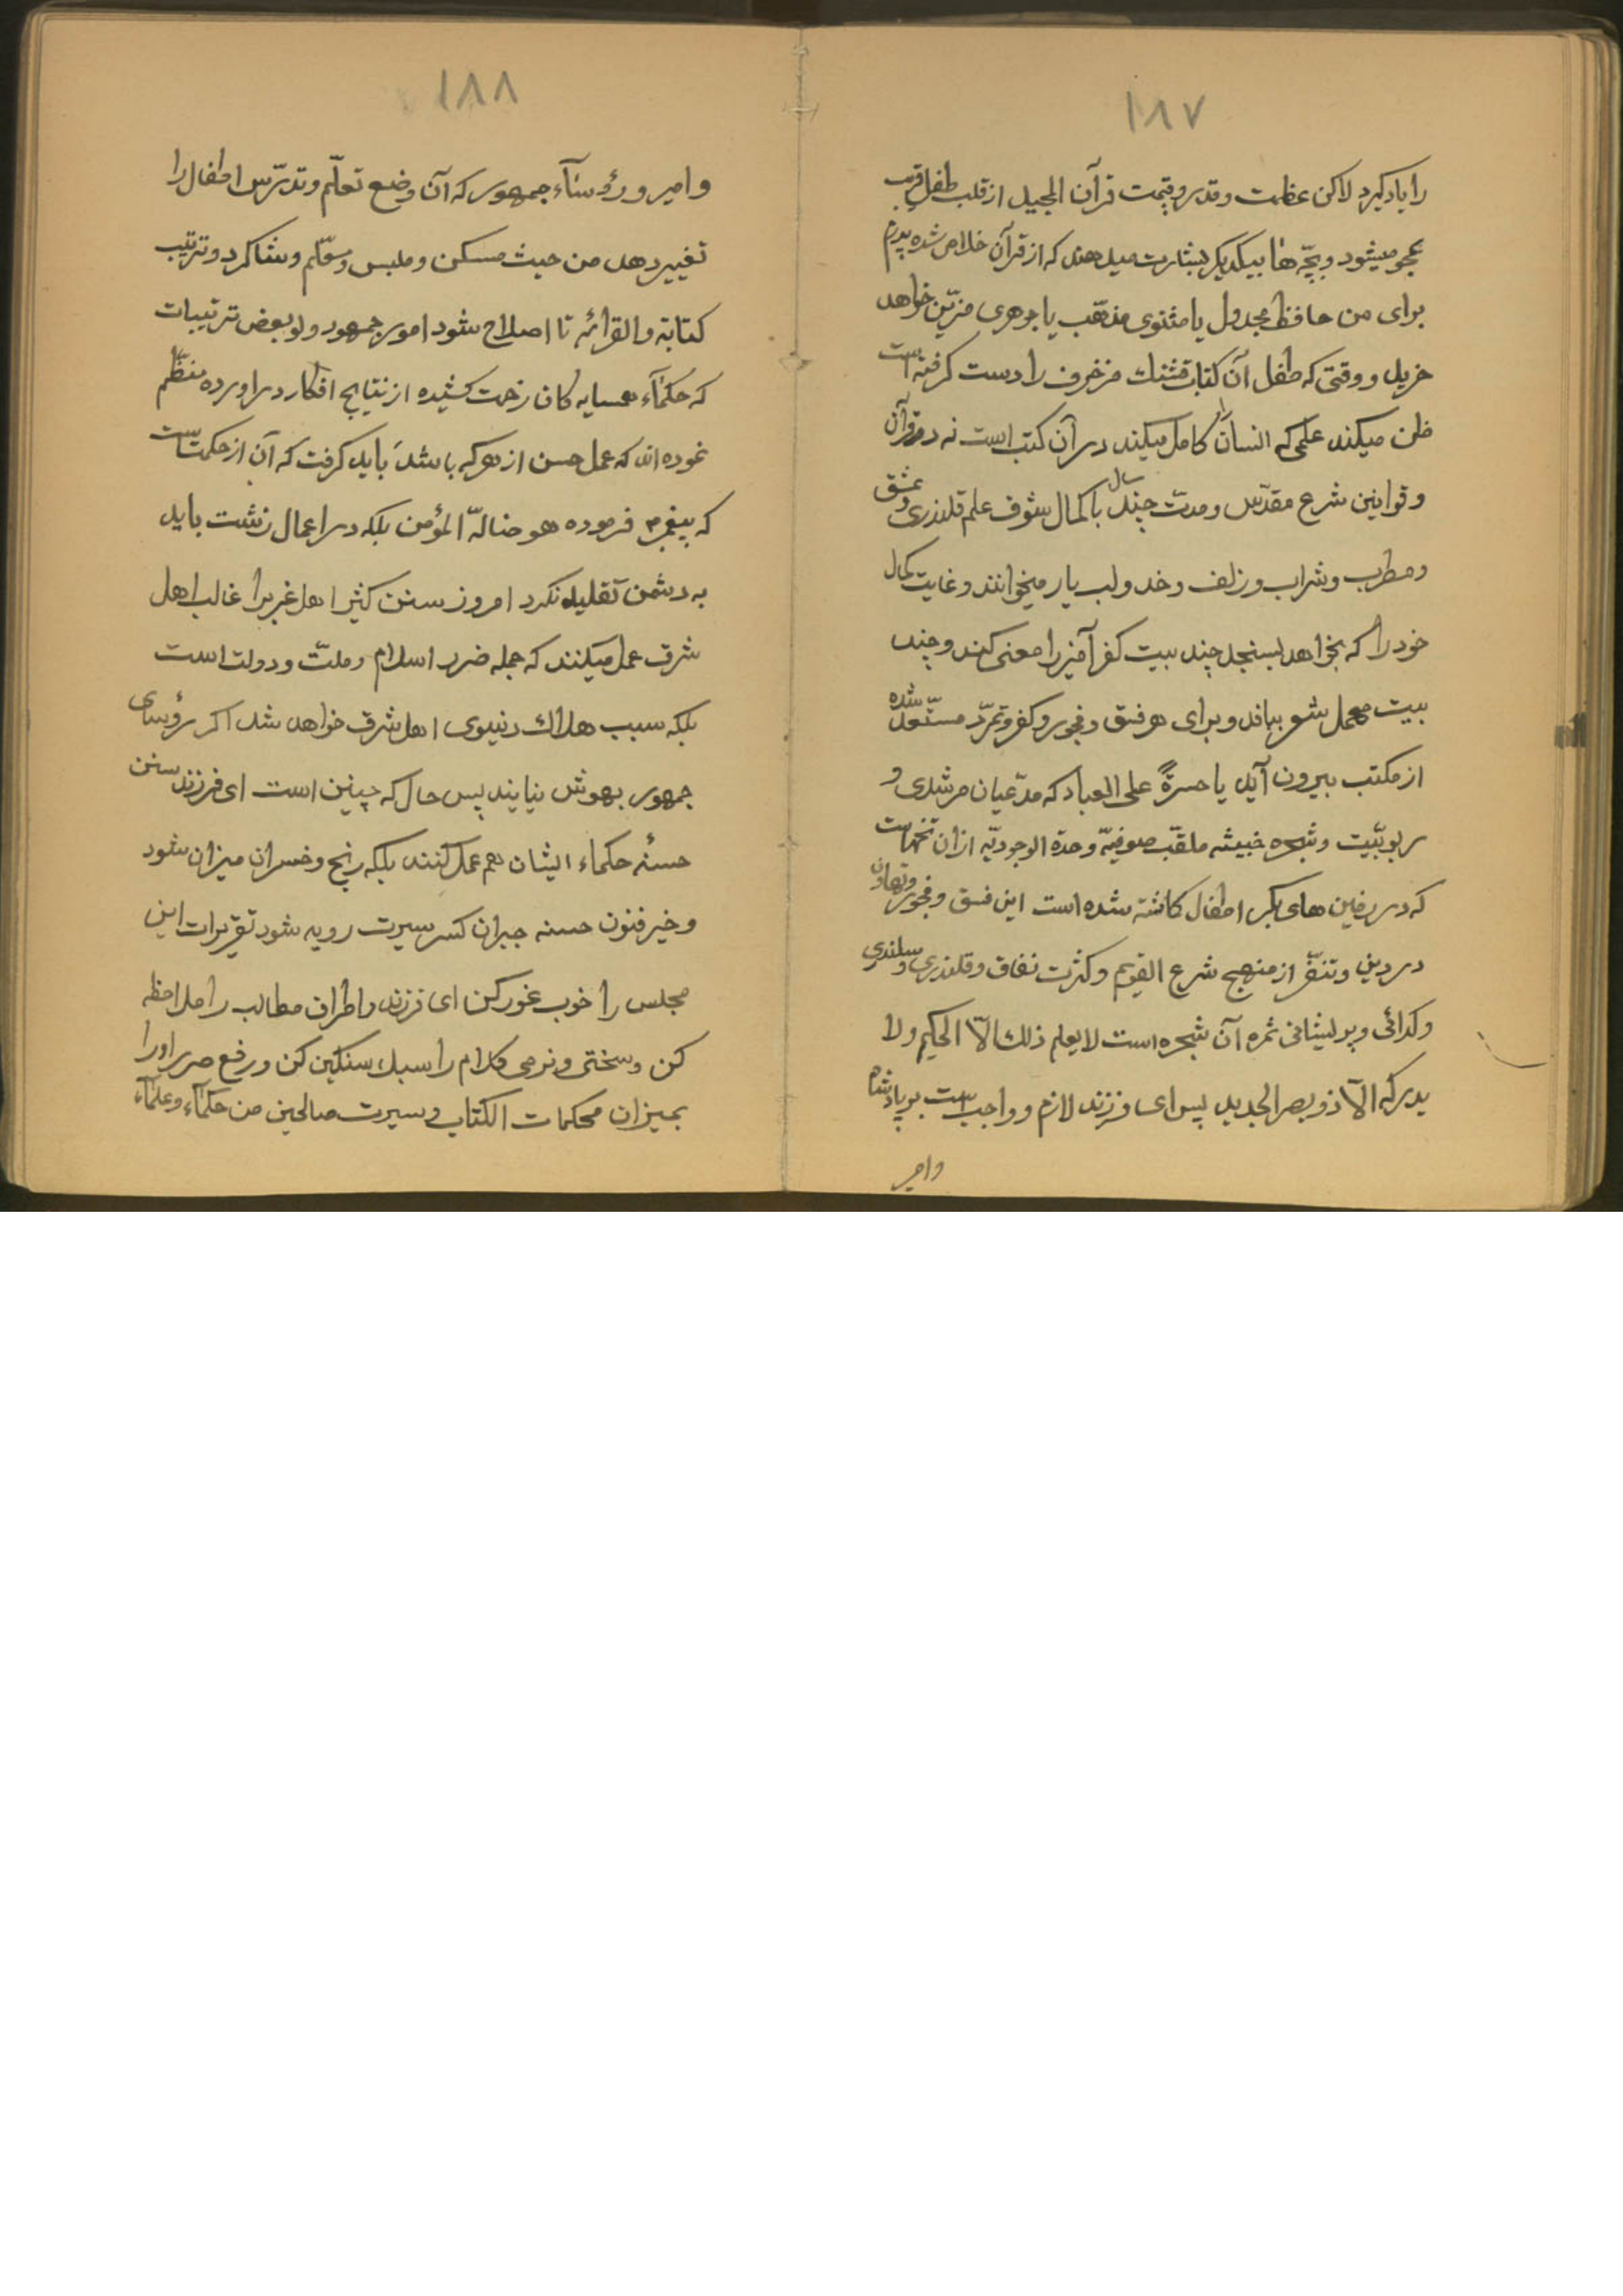 ١٨٧
را یاد کیرد لاکن عظمت و قدر و قیمت قرآن المجید از قلب طفل قریب
بمحو میشود و بچّه ها بیکدیکر بشارت میدهند که از قرآن خلاص شده پدرم
برای من حافظ مجدول یا مثنوی مذهّب یا جوهری مزیّن خواهد
خرید و وقتی که طفل آن کتاب قشنك مزخرف را دست کرفته است
ظن میکند علمی که انسان را کامل میکند در آن کتب است نه در قرآن
و قوانین شرع مقدّس و مدت چند سال با کمال شوق علم قلندری و عشق
و مطرب و شراب و زلف و خد و لب یار میخوانند و غایت کمال
خود را که بخواهد بسنجد چند بیت کفر آمیز را معنی کند و چند
بیت مهمل شعر بباقد و برای هر فسق و فجور و کفر و تمرّد مستعدّ شده
از مکتب بیرون آید یا حسرةً علی العباد که مدّعیان مرشدی و
ربوبّیت و شجره خبیثه ملقّب صوفیّه وحدة الوجودیّه ازان تخمهاست
که در زمین های بکر اطفال کاشته شده است این فسق و فجور و تهاون
در دین و تنفّر از منهج شرع القویم و کثرت نفاق و قلندری و سلندری
و کدائی و پریشانی ثمره آن شجره است لا یعلم ذلك الّا الحکیم و لا
یدرکه الّا ذو بصر الحدید پس ای فرزند لازم و واجب است بر پادشاه
وامیر
١٨٨
و امیر و رؤسآء جمهور که آن وضع تعلّم و تدرّس اطفال را
تغییر دهد من حیث مسکن و ملبس و معّلم و شاکرد و ترتیب
کتابة و القرائه تا اصلاح شود امور جمهور و لو بعض ترتیبات
که حکمآء همسایه کان زحمت کشیده از نتایج افکار در اورده منظّم
نموده اند که عمل حسن از هرکه باشد باید کرفت که آن از حکمتست
که پیغمبر م فرموده هو ضالّة المؤمن بلکه در اعمال زشت باید
به دشمن تقلید نکرد امروز سنن کثیر اهل غرب را غالب اهل
شرق عمل میکنند که جمله ضرر اسلام و ملّت و دولت است
بلکه سبب هلاك دنیوی اهل شرق خواهد شد اکر رؤسای
جمهور بهوش نیایند پس حال که چنین است ای فرزند سنن
حسنهٔ حکماء ایشان هم عمل کنند بلکه رنج و خسران میزان شود
و خیر فنون حسنه جبران کسر سیرت رویه شود تقریرات این
مجلس را خوب غور کن ای فرزند و اطراف مطالب را ملاحظه
کن و سختی و نرمی کلام را سبك سنکین کن و رفع ضرر او را
بمیزان محکمات الکتاب و سیرت صالحین من حکمآء و علمآء